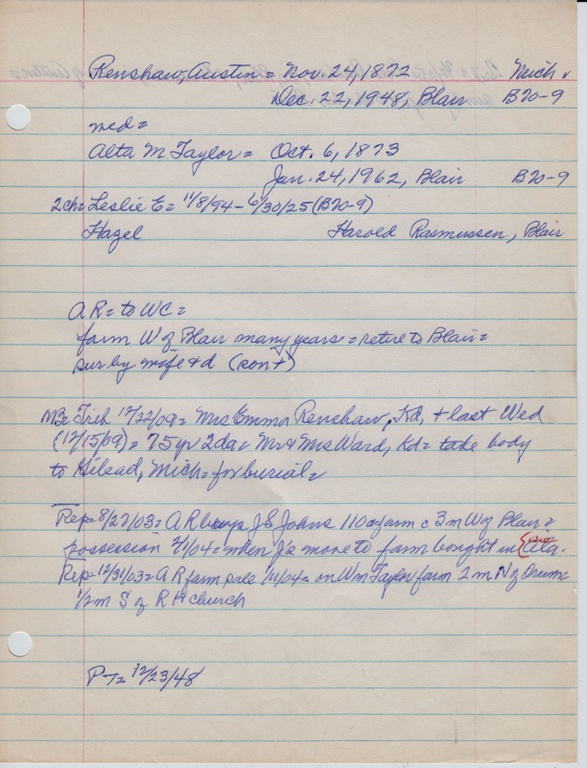 Renshaw, Austin = Nov. 24, 1872 Mich
Dec. 22, 1948, Blair B20-9
md=
Alta M Taylor = Oct. 6, 1873
Jan. 24, 1962, Blair B20-9
2ch= Leslie E= 11/8/94 - 6/30/25 (B20-9)
Hazel Harold Rasmussen, Blair
AR= to WC=
farm W of Blair many years = retire to Blair=
sur by wife & d (son +)
Trib 12/22/09= Mrs Emma Renshaw, Kd, + last Wed
(12/15/09)= 75 yr 2 da= Mr & Mrs Ward, Kd= take body
to Gilead, Mich= for burial=
Rep= 8/27/03= AR buys J S Johns 110 a farm c 3 m W of Blair=
possession 2/1/04= when J's move to farm bought in
Rep= 12/31/03= AR farm sale 1/11/04= on Wm Taylor farm 2 m N of Orum=
1/2 m S of R H church
P-T= 12/23/48